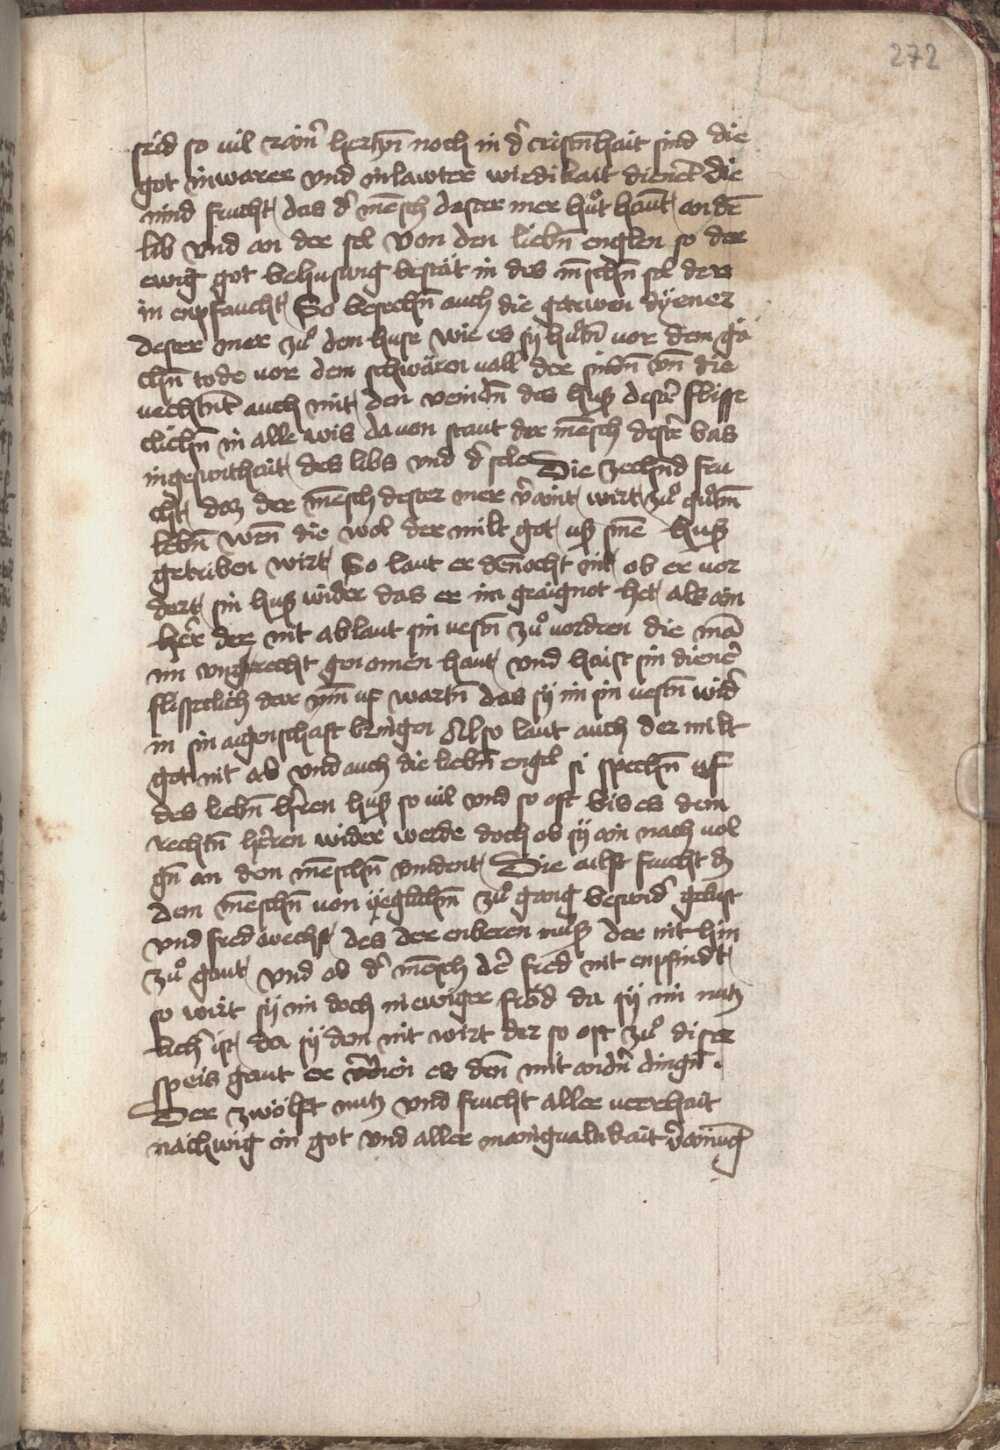 272
frid so vil rainr̄ hertzn̄ noch in d̄ cristn̄hait sind die
got inwarer vnd inlawter wirdikait dienet die
nind frucht das d̄ mēsch dester mer hůt haut an dē
lib vnd an der sel von den liebn̄ englen so der
ewig got behusung bestät in des mēschn̄ sel der
in enpfaucht So besechn̄ auch die getrwen dÿener
dester mer zů dem huse wie es sÿ hütn̄ vor dem gä
chn̄ tode vor dem schwären vall der sündn̄ vn̄ die
vechtnt auch mit den veindn̄ des huß destr̄ flisse
clichn̄ in alle wis da von staut der mēsch destr̄ bas
ingesunthait des libs vnd d̄ sele Die zechend fru
cht daz der mēsch dester mer v̄aint wirt zů gůtm̄
lebn̄ wen̄ die wol der milt got uß sinē huß
getriben wirt So laut er den̄ocht nit ob er vor
dert sin huß wider das er im geaignot het als ain
her̄ der nit ablaut sin vestn̄ zů vordren die mā
im vngerecht genomen haut vnd haist sin dienēr
flisseclich dar vm̄ uf wartn̄ das sÿ im sin vestn̄ widr̄
in sin aigenschaft bringen Also laut auch der milt
got nit ab vnd auch die liebn̄ engel si spechn̄ uf
des liebn̄ hr̄ren huß so vil vnd so oft bis es dem
rechtn̄ heren wider werde doch ob sÿ ain nach vol
gn̄ an den mēschn̄ vindent Die ailft frucht dz
dem mēschn̄ von ÿeglichm̄ zů gang besundr̄ gelust
vnd fred wechst des der enberen můß der nit hin
zů gaut vnd ob d̄ mēsch der̄ fred nit enpfindt
so wirt sÿ im doch in ewiger fröd da sÿ im nutz
lichr̄ ist da sÿ dem nit wirt der so oft zů diser
speis gaut er v̄dien es den̄ mit andn̄ dingn̄.
Der zwölft nutz vnd frucht aller uerrhait
nachwig in got vnd aller manigualtikait v̄ainūg